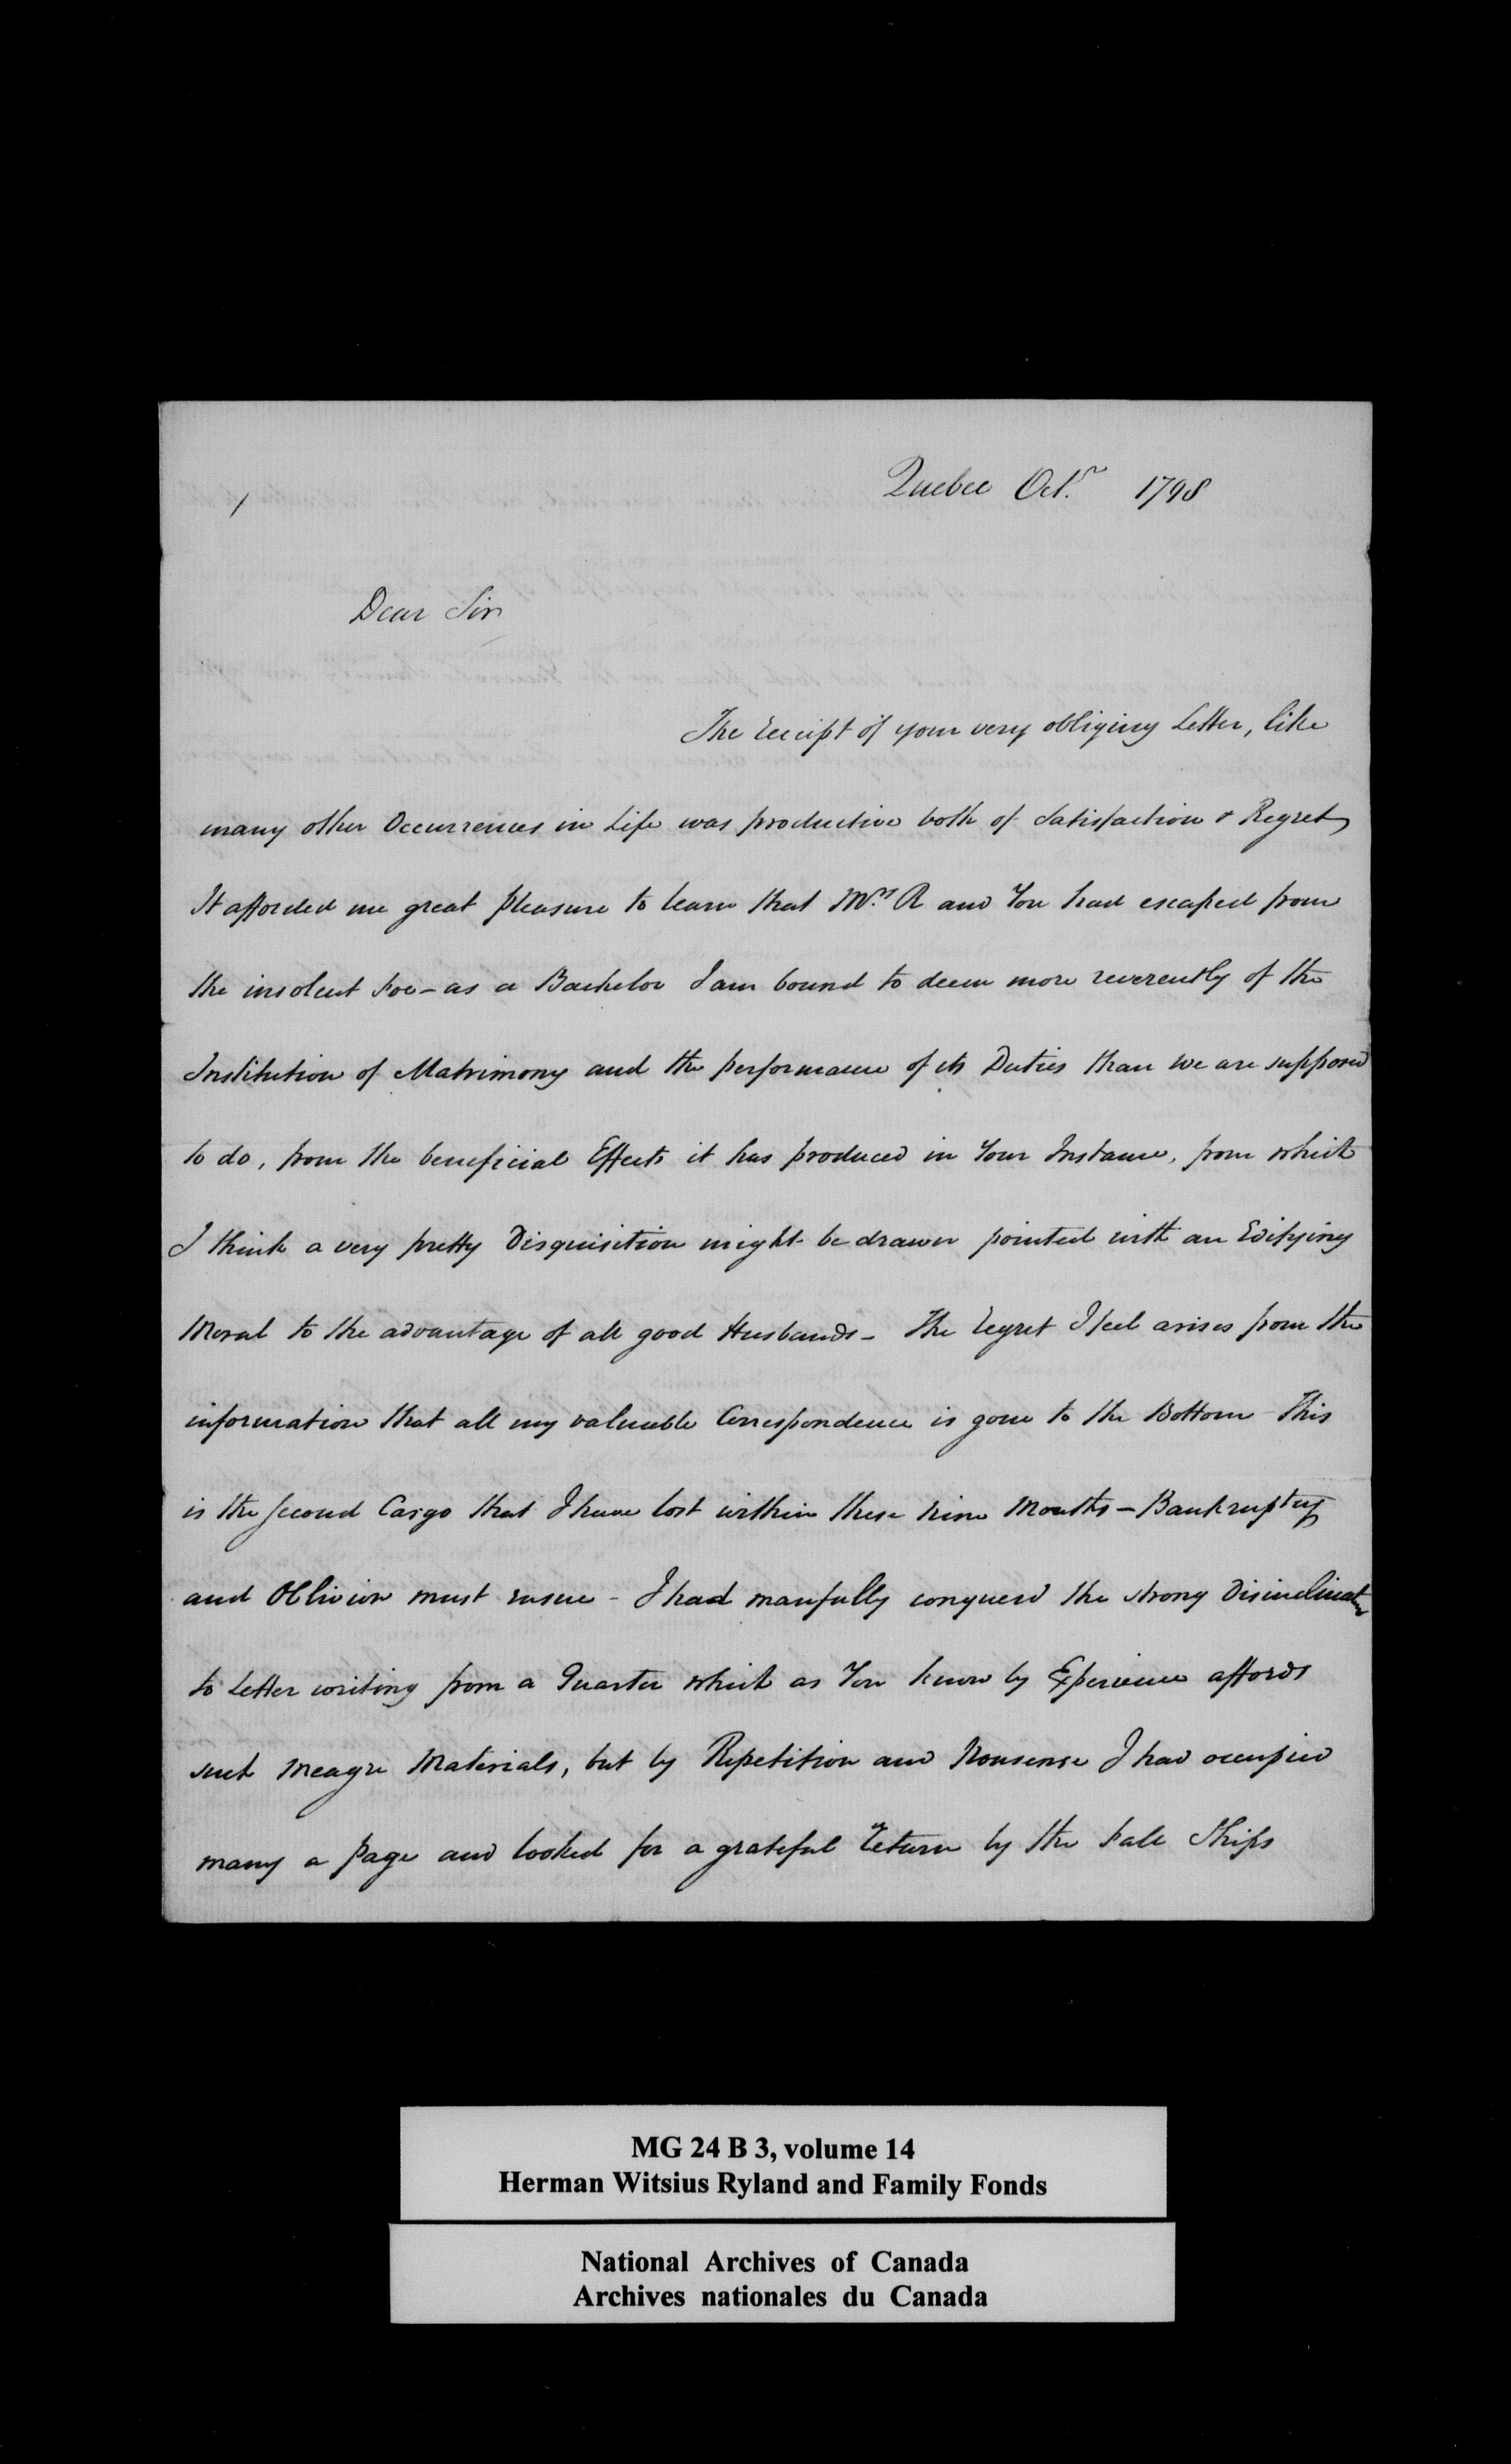 1
Quebec Octr. 1798
Dear Sir
The receipt of your very obliging Letter, like
many other Occurrences in Life was productive both of Satisfaction & Regret
It afforded me great pleasure to learn that Mrs. R and You had escaped from
the insolent Foe - as a Bachelor I am bound to deem more reverently of the
Institution of Matrimony and the performance of its Duties than we are supposed
to do, from the beneficial Effects it has produced in Your Instance, from which
I think a very pretty Disquisition might be drawn pointed with an Edifying
Moral to the advantage of all good Husbands - The regret I feel arises from the
information that all my valuable Correspondence is gone to the Bottom - This
is the second Cargo that I have lost within these nine Months - Bankruptcy
and Oblivion must ensue - I had manfully conquerd the strong Disinclination
to Letter writing from a Quarter which as You know by Experience affords
such meagre Materials, but by Repetition and Nonsense I had occupied
many a page and looked for a grateful return by the Fall Ships
MG 24 B 3, volume 14
Herman Witsius Ryland and Family Fonds
National Archives of Canada
Archives nationales du Canada